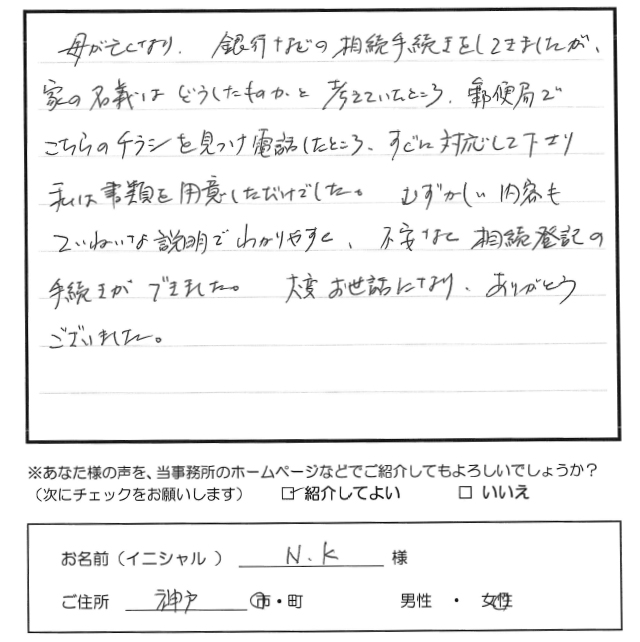 母が亡くなり、銀行などの相続手続きをしてきましたが、
家の名義はどうしたものかと考えていたところ、郵便局で
こちらのチラシを見つけ電話したところ、すぐに対応して下さり
私は書類を用意しただけでした。むずかしい内容も
ていねいな説明でわかりやすく、不安なく相続登記の
手続きができました。大変お世話になり、ありがとう
ございました。
※あなた様の声を、当事務所のホームページなどでご紹介してもよろしいでしょうか?
(次にチェックをお願いします) ☑ 紹介してよい □ いいえ
お名前(イニシャル ) N.K 様
ご住所 神戸 市・町 男性 ・ 女性